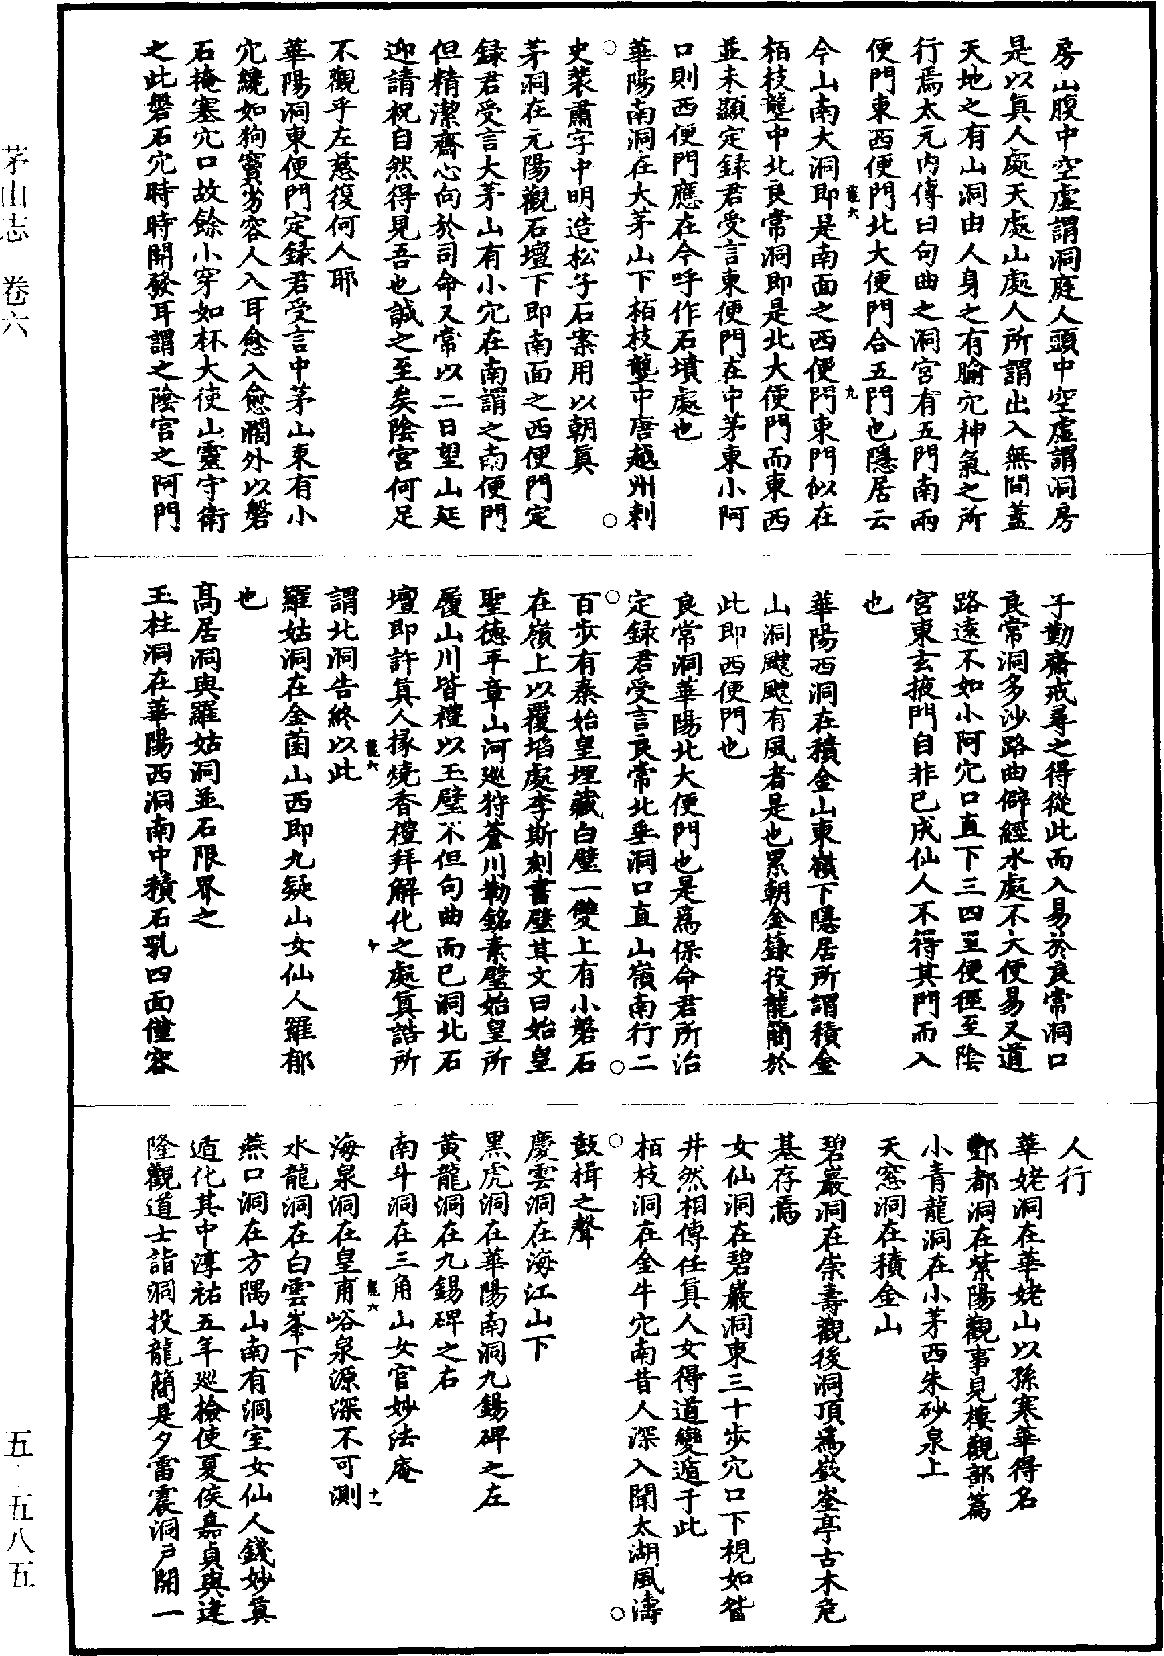 房山腹中空虛謂洞庭人頭中空虛謂洞房
是以真人處天處山處人所謂出入無間蓋
天地之有山洞由人身之有腧穴神氣之所
行焉太元內傳曰句曲之洞宮有五門南兩
便門東西便門北大便門合五門也隱居云
今山南大洞即是南面之西便門東門似在
栢枝壟中北良常洞即是北大便門而東西
並未顯定錄君受言東便門在中茅東小阿
口則西便門應在今呼作石墳處也
華陽南洞在大茅山下栢枝壟中唐越州剌
史裴肅字中明造松子石案用以朝真
茅洞在元陽觀石壇下即南面之西便門定
錄君受言大茅山有小穴在南謂之南便門
但精潔齋心向於司命又常以二日望山延
迎請祝自然得見吾也誠之至矣陰宮何足
不觀乎左慈復何人耶
華陽洞東便門定錄君受言中茅山東有小
穴纔如狗竇劣容人入耳愈入愈闊外以磐
石掩塞穴口故餘小穿如杯大使山靈守衛
之此磐石穴時時開發耳謂之陰宮之阿門
子勤齋戒尋之得從此而入易於良常洞口
良常洞多沙路曲僻經水處不大便易又道
路遠不如小阿穴口直下三四里便徑至陰
宮東玄掖門自非已成仙人不得其門而入
也
華陽西洞在積金山東嶺下隱居所謂積金
山洞颼颼有風者是也累朝金籙投龍簡於
此即西便門也
良常洞華陽北大便門也是爲保命君所治
定錄君受言良常北垂洞口直山嶺南行二
百步有秦始皇埋藏白璧一雙上有小磐石
在嶺上以覆埳處李斯刻書璧其文曰始皇
聖德平章山河巡狩蒼川勒銘素璧始皇所
履山川皆禮以玉璧不但句曲而已洞北石
壇即許真人掾燒香禮拜解化之處真誥所
謂北洞告終以此
羅姑洞在金菌山西即九疑山女仙人羅郁
也
高居洞與羅姑洞並石限界之
玉柱洞在華陽西洞南中積石乳四面僅容
人行
華姥洞在華姥山以孫寒華得名
酆都洞在紫陽觀事見樓觀部篇
小青龍洞在小茅西朱砂泉上
天窓洞在積金山
碧巖洞在崇壽觀後洞頂爲嶔崟亭古木危
基存焉
女仙洞在碧巖洞東三十步穴口下視如甃
井然相傳任真人女得道變遁于此
栢枝洞在金牛穴南昔人深入聞太湖風濤
鼓楫之聲
慶雲洞在海江山下
黑虎洞在華陽南洞九錫碑之左
黃龍洞在九錫碑之右
南斗洞在三角山女官妙法庵
海泉洞在皇甫峪泉源深不可測
水龍洞在白雲峯下
燕口洞在方隅山南有洞室女仙人錢妙真
遁化其中淳祐五年巡檢使夏侯嘉貞與逢
隆觀道士詣洞投龍簡是夕雷震洞戶開一
茅山志 卷六
五·五八五